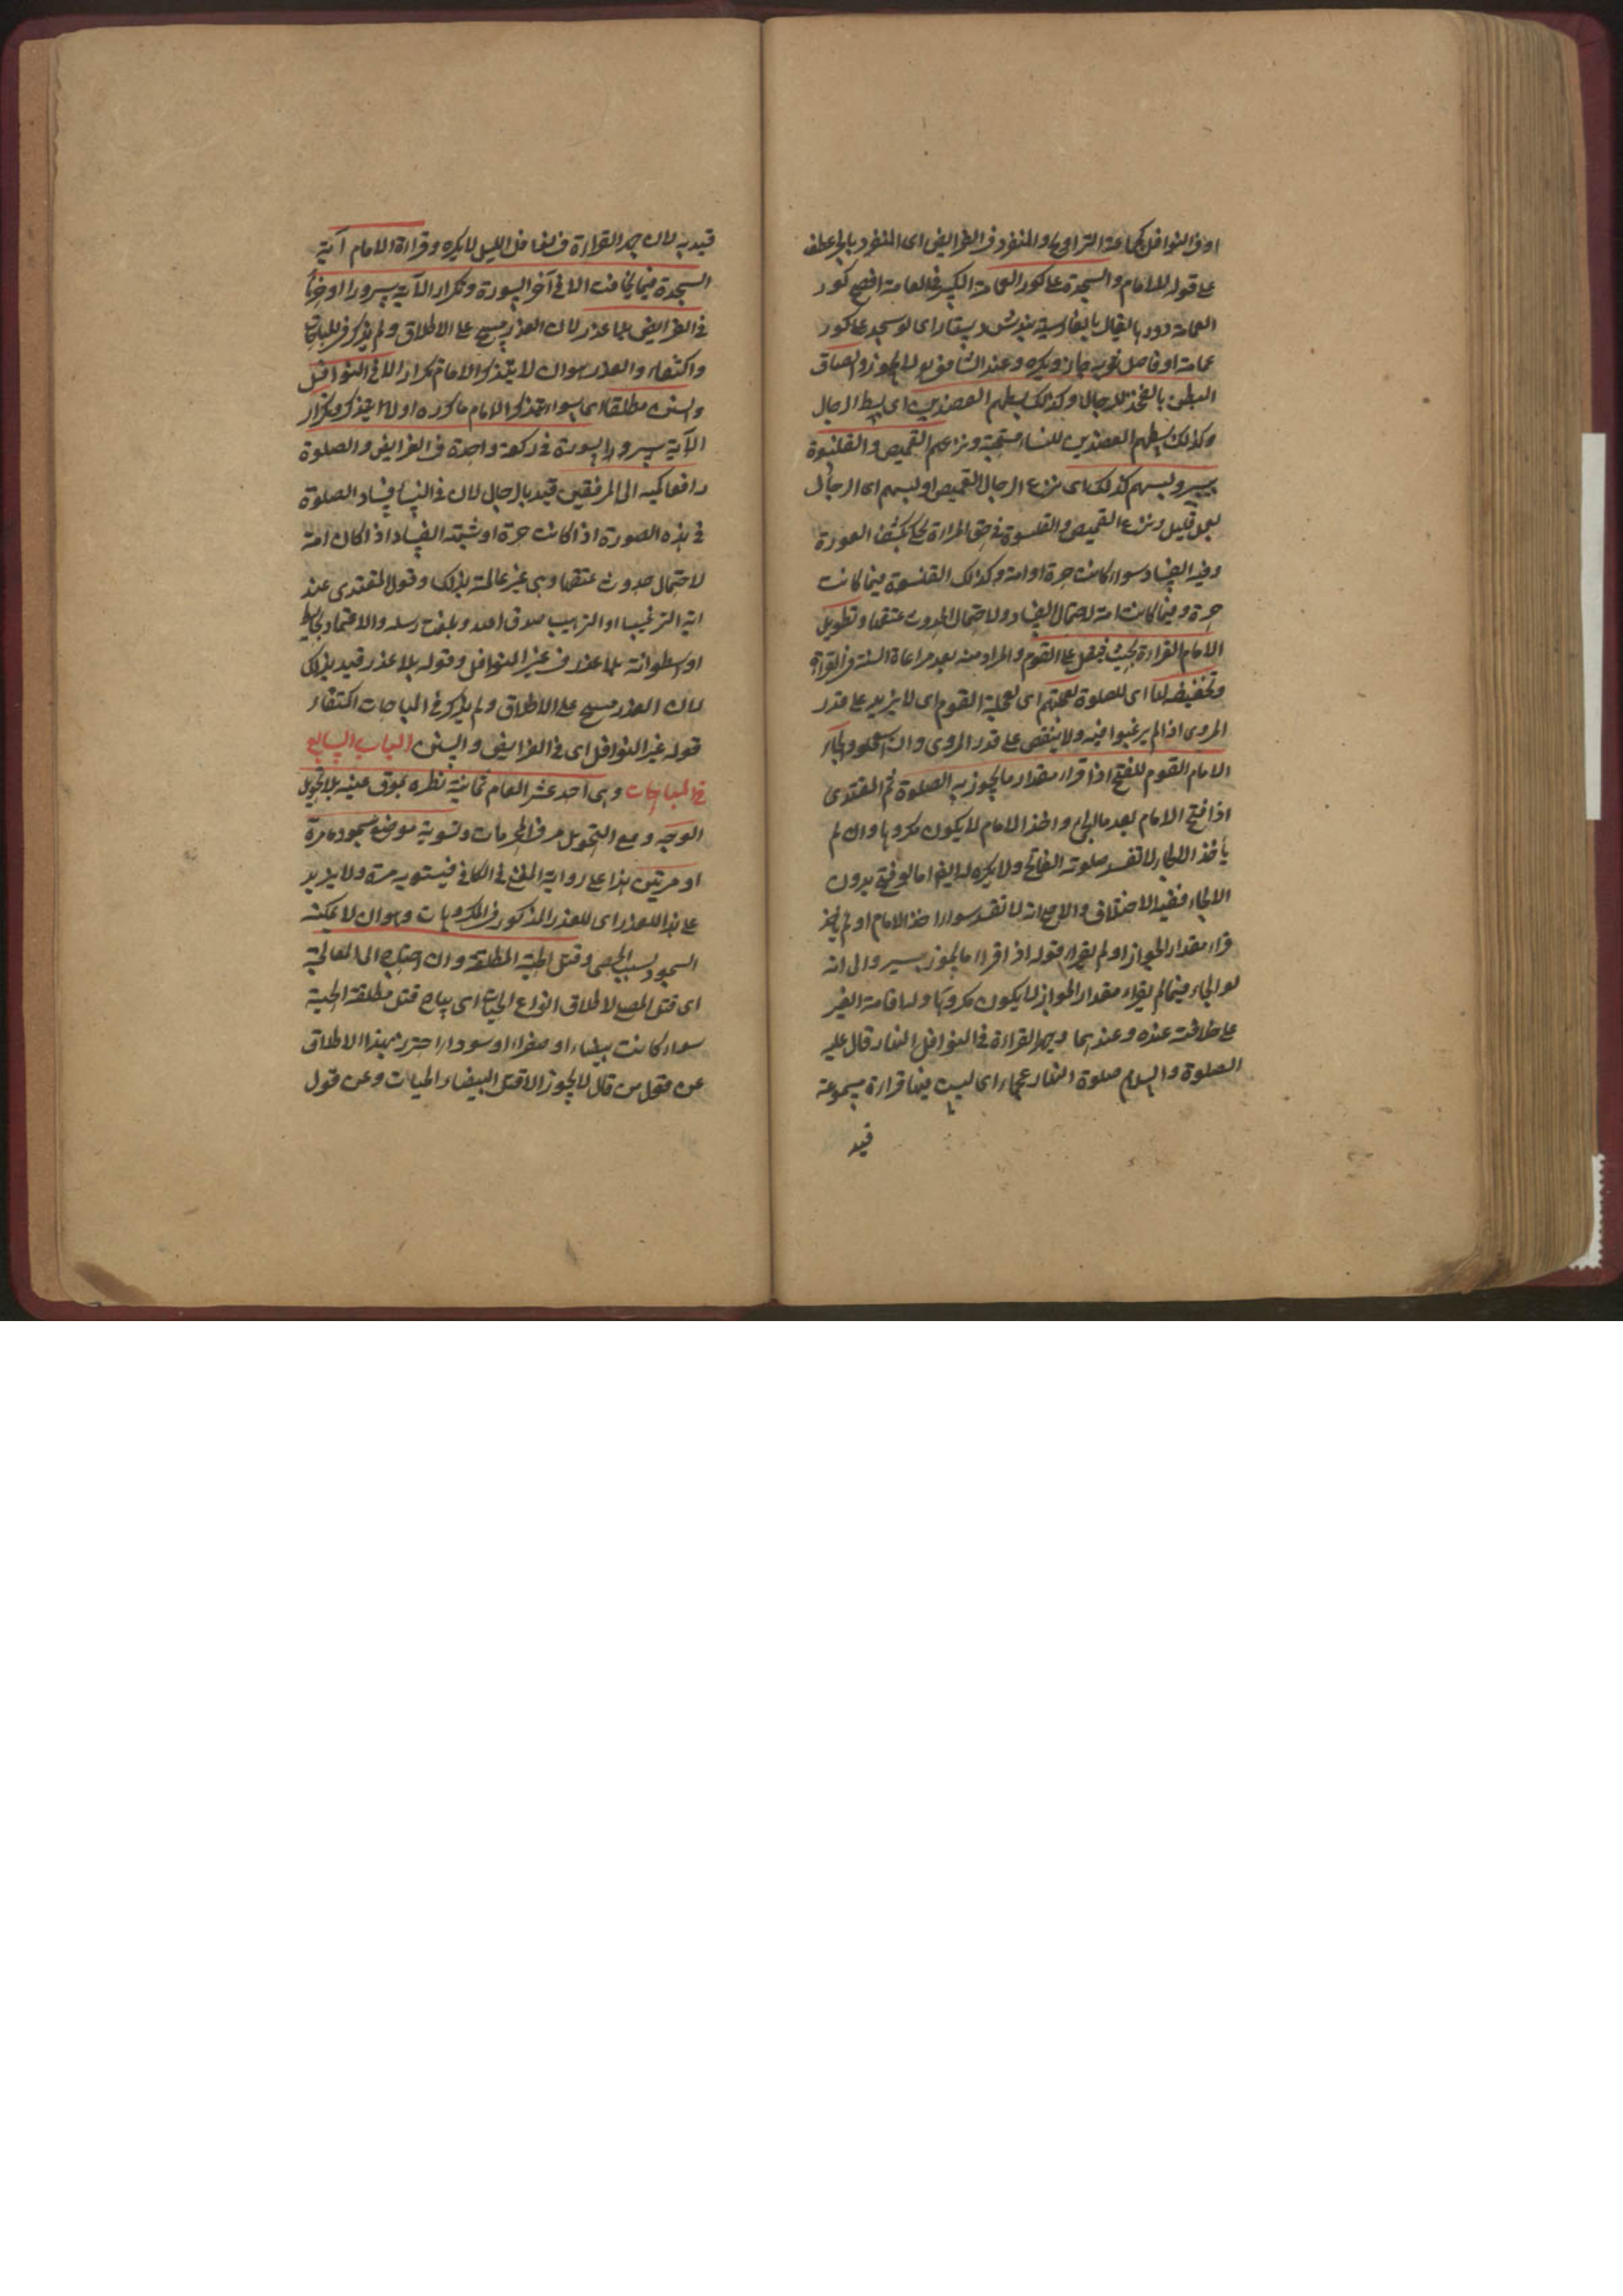 او فى النوافل كجماعة التراويح والمنفرد فى الفرايض اى المنفرد بالجر عطف
على قوله للامام والسجدة على كور العمامة الكبير فى العامة افصح كور
العمامة دورها يقال بالفارسية دستار اى لو سجد على كور
عمامته او فاضل ثوبه جاز ويكره وعند الشافعى لا يجوز والصاق
البطن بالفخذ للرجال وكذلك بسطهم العضدين اى بسط الرجال
وكذلك بسطهم العضدين للنساء مستحبة ونزعهم القميص والقلنسوة
بيسير ولبسهم كذلك اى نزع الرجال القميص او لبسهم اى الرجال
بعمل قليل ونزع القميص والقلنسوة فى حق المراة كشف العورة
وفيه الفساد سواء كانت حرة او امة وكذلك القلنسوة فيما كانت
حرة وفيما كانت امة لاحتمال الفساد ولاحتمال الحدوث عتقها وتطويل
الامام القراءة بحيث يثقل على القوم والمراد منه بعد مراعاة السنة فى القراءة
وتخفيفه لها اى للصلوة لعجلتهم اى لعجلة القوم اى لا يزيد على قدر
المروى اذا لم يرغبوا فيه ولا ينقص على قدر المروى وان استعجلوا والجاء
الامام القوم للفتح اذا قراء مقدار ما يجوز به الصلوة ثم المقتدى
اذا فتح الامام بعد ما الجاء واخذ الامام لا يكون مكروها وان لم
ياخذ الالجاء لا تفسد صلوته الفاتح ولا يكره له ايضا اما لو فتح بدون
الالجاء ففيه الاختلاف والاصح انه لا تفسد سواء اخذ الامام او لم ياخذ
قراء مقدار الجواز او لم يقراء قوله اذا قراء ما يجوز يسير وال انه
لو الجاء فيما لم يقراء مقدار الجواز لا يكون مكروها
على خلافته عنده وعندهما وجهر القراءة فى النوافل النهار قال عليه
الصلوة والسلام صلوة النهار عجماء اى ليس فيها قراءة مسموعة
قيد
قيد به لان جهر القراءة فى نوافل الليل لا يكره وقراءة الامام آية
السجدة فيما يخافت الا فى آخر السورة وتكرار الآية سرورا او حزنا
فى الفرايض بلا عذر لان العذر مبيح على الاطلاق ولم يذكر فى المباحات
واكتفاء والعذر هو ان لا يتذكر الامام تكرار الا فى النوافل
والسنن مطلقا اى سواء يتذكر الامام ما كرره او لا يتذكر وتكرار
الآية سرورا السورة فى ركعة واحدة فى الفرايض والصلوة
رافعا كميه الى المرفقين قيد بالرجال لان فى النساء فساد الصلوة
فى هذه الصورة اذا كانت حرة او شبهة الفساد اذا كان امة
لاحتمال حدوث عتقها وهى غير عالمة بذلك وقول المقتدى عند
آية الترغيب او الترهيب صدق الله وبلغت رسله والاعتماد بحايط
او اسطوانة بلا عذر فى غير النوافل وقوله بلا عذر قيد بذلك
لان العذر مبيح على الاطلاق ولم يذكر فى المباحات اكتفاء
قوله غير النوافل اى فى الفرايض والسنن الباب السابع
فى المباحات وهى احد عشر العام ثمانية نظره بموق عينه بلا تحويل
الوجه ومع التحويل مر فى المحرمات وتسوية موضع سجوده مرة
او مرتين هذا على رواية فى الكافى فيستويه مرة ولا يزيد
على هذا للعذر اى للعذر المذكور فى المكروهات وهو ان لا يمكنه
السجود بسبب الحصى وقتل الحية المطلقة وان احتاج الى المعالجة
اى قتل المصلى لاطلاق انواع الحيات اى يباح قتل مطلقة الحية
سواء كانت بيضاء او صفراء او سوداء احترز بهذا الاطلاق
عن قول من قال لا يجوز الا قتل البيضاء الحيات وعن قول